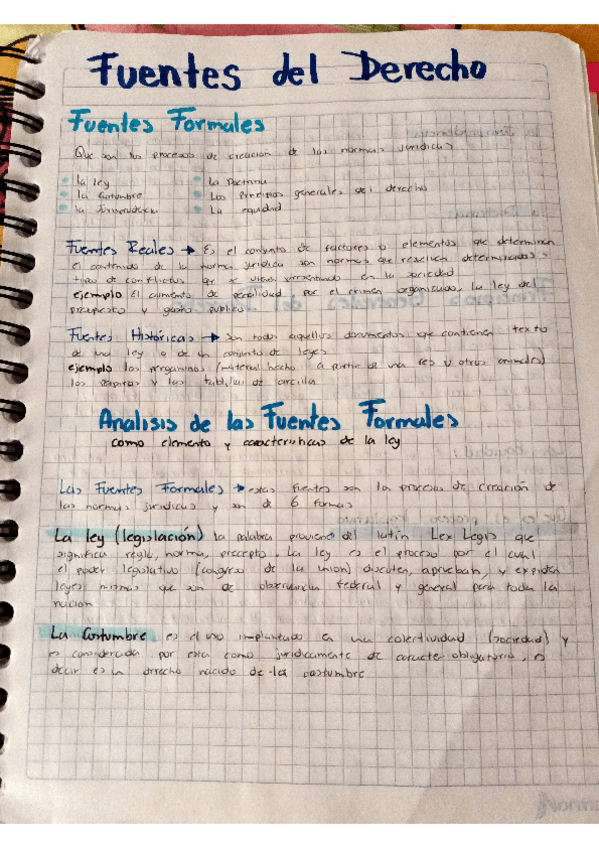 Fuentes del Derecho
Fuentes Formales
Que son los procesos de creación de las normas juridicas
• la ley
• la Costumbre
• la Jurisprudencia
• La Doctrina
• Los Principios generales del derecho
• La equidad
Fuentes Reales → Es el conjunto de factores o elementos que determinan
el contenido de la norma juridica son normas que resuelven determinados
tipo de conflictos que se viven presentando en la sociedad
ejemplo El aumento de penalidad por el crimen organizado, la ley del
presupuesto y gasto publico
Fuentes Históricas → son todos aquellos documentos que contienen texto
de una ley o de un conjunto de leyes
ejemplo los pergaminos (material hecho a partir de una res u otros animales)
los papiros y las tablillas de arcilla
Analisis de las Fuentes Formales
como elemento y caracteristicas de la ley
Las Fuentes Formales → estas fuentes son la procesos de creación de
las normas juridicas y son de 6 formas
La ley (legislación) la palabra proviene del latín Lex Legis que
significa regla, norma, precepto. La ley es el proceso por el cual
el poder legislativo (congreso de la union) discuten, aprueban, y expiden
leyes mismas que son de observancia federal y general para toda la
nacion
La Costumbre es el uso implantado en una colectividad (sociedad) y
es considerada por esta como juridicamente de caracter obligatorio, es
decir es un derecho nacido de la costumbre